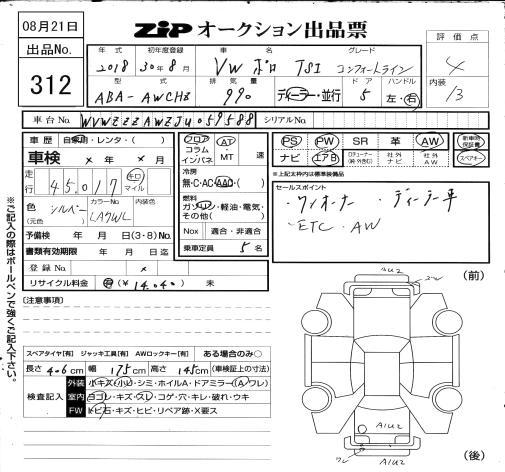 08月21日
ZiP オークション出品票
出品No.
312
年式 初年度登録 車名 グレード
2018 30年8月 VW ポロ TSI コンフォートライン
型式 排気量 ドア ハンドル
ABA-AWCHZ 990 ディーラー・並行 5 左・右
評価点
4
内装
B
車台No. シリアルNo.
車歴 自家用・レンタ・( )
車検 × 年 × 月
走行 45,017 キロ マイル
色 シルバー カラーNo. LA7WL 内装色
(元色)
予備検 年 月 日(3・8)No.
書類有効期限 年 月 日
登録No. ×
リサイクル料金 済(¥ 14,040) 未
フロア コラム インパネ AT MT 速
冷房
無・C・AC・AAC・( )
燃料
ガソリン・軽油・電気・その他( )
Nox 適合・非適合
乗車定員 5名
PS PW SR 革 AW
ナビ エアB 社外ナビ 社外AW
新車時保証書
スペアキー
※上記太枠内は標準装備品
セールスポイント
・ワンオーナー ・ディーラー車
・ETC ・AW
〔注意事項〕
スペアタイヤ[有] ジャッキ工具[有] AWロックキー[有] ある場合のみ○
長さ 406cm 幅 175cm 高さ 145cm (車検証上の寸法)
検査記入
外装 小キズ・小凹・シミ・ホイルA・ドアミラー(A・ワレ)
室内 ヨゴレ・キズ・スレ・コゲ・穴・キレ・破れ・ウキ
FW トビ石・キズ・ヒビ・リペア跡・X要ス
※ご記入の際はボールペンで強くご記入下さい。
(前)
AU2
AIU2
AIU2
(後)